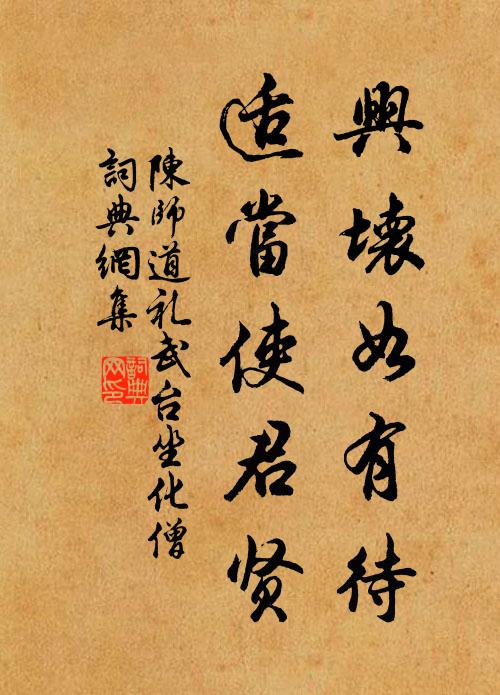 興壞如有待
适當使君贤
陳師道礼武台坐化僧
詞典網集
詞典网印